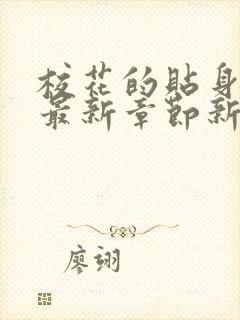 校花的贴身
最新章节新
廖翊